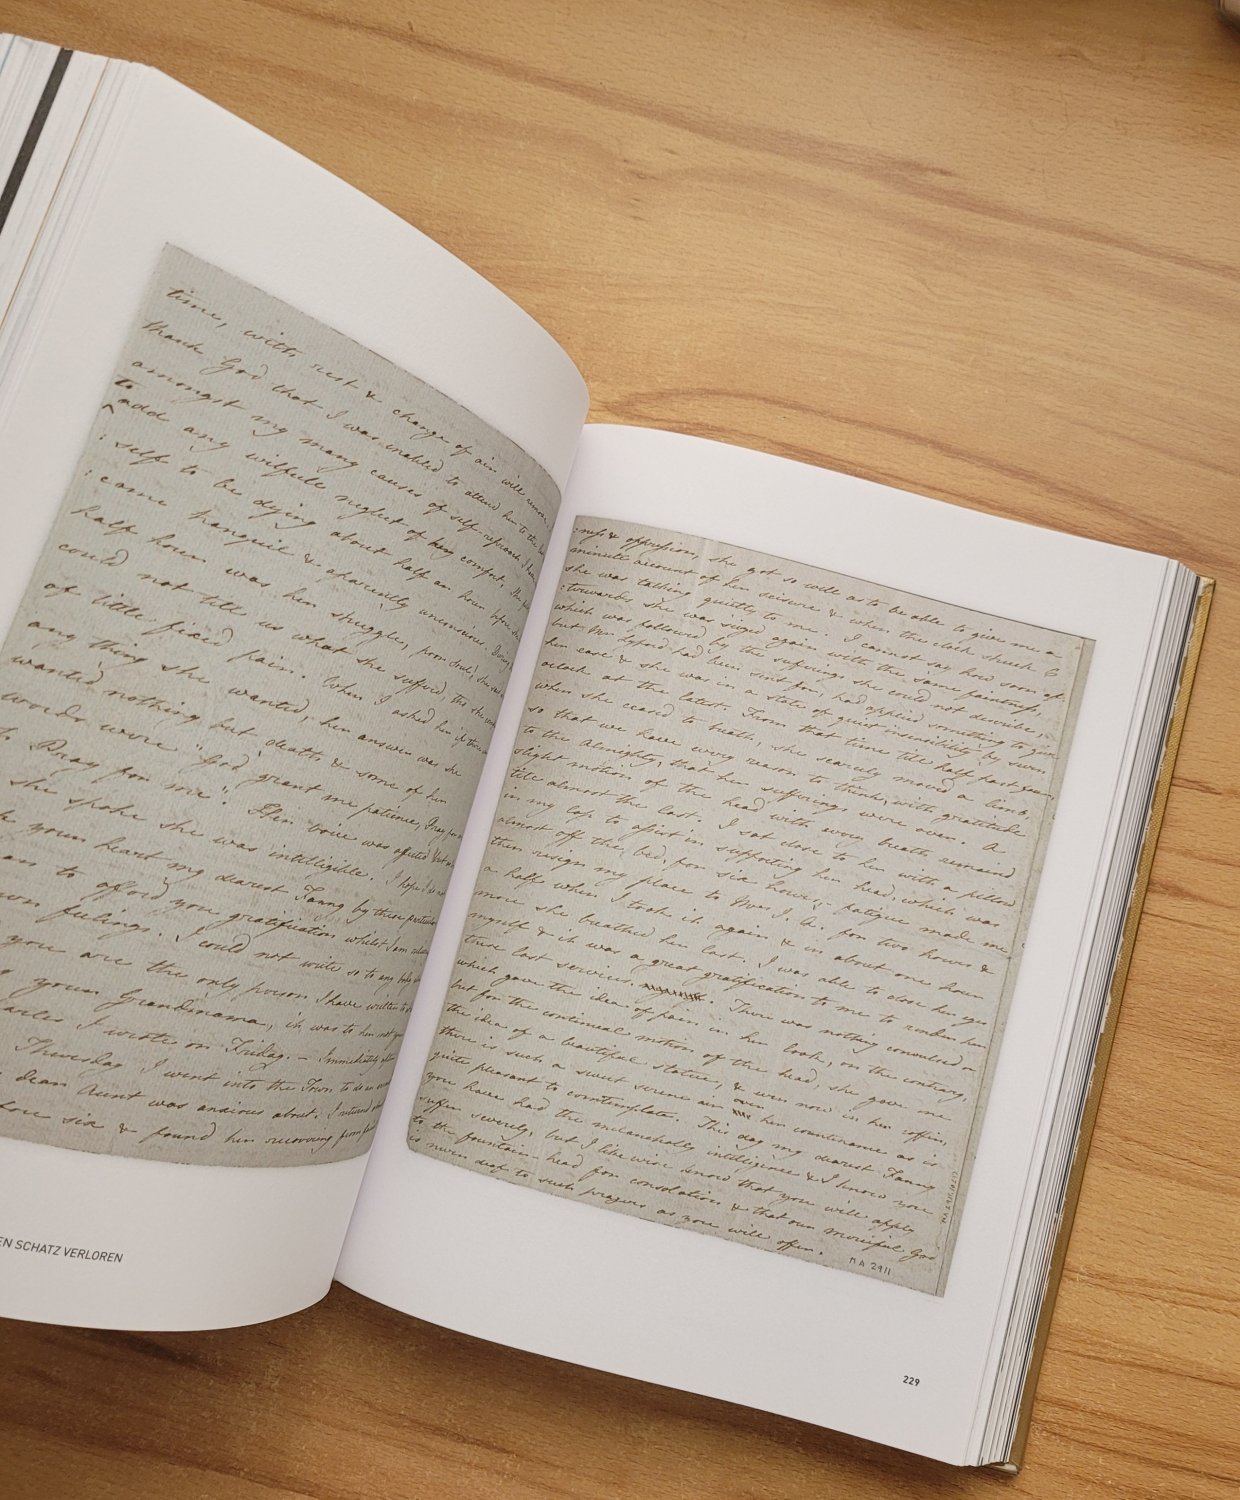 time, with rest & change of air will remove. I
thank God that I was enabled to attend her to the last &
amongst my many causes of self-reproach I have
to
add any wilfull neglect of her comfort. She felt
:self to be dying about half an hour before she
:came tranquil & aparently unconscious. During
half hour was her struggle, poor Soul! she said
could not tell us what she sufferd, tho she
of little fixed pain. When I asked her if there
any thing she wanted, her answer was she
wanted nothing but death & some of her
words were "God grant me patience, Pray for
Pray for me". Her voice was affected but
she spoke she was intelligible. I hope I
your heart my dearest Fanny by these particulars
to afford you gratification whilst I am
feelings. I could not write so to any body
you are the only person I have written to
your Grandmama, it was to her not
I wrote on Friday. - Immediately
Thursday I went into the Town to do an
dear Aunt was anxious about. I returnd
six & found her recovering from
EN SCHATZ VERLOREN
:ness & oppression; she got so well as to be able to give me a
minute account of her seisure & when the clock struck 6
she was talking quietly to me. I cannot say how soon af
:towards she was siezed again with the same faintness,
which was followed by the sufferings she could not describe,
but Mr. Lyford had been sent for, had applied something to give
her ease & she was in a state of quiet insensibility by seven
oclock at the latest. From that time till half past four,
when she ceased to breath, she scarcely moved a limb,
so that we have every reason to think, with gratitude
to the Almighty, that her sufferings were over. A
slight motion of the head with every breath remaind
till almost the last. I sat close to her with a pillow
in my lap to assist in supporting her head, which was
almost off the bed, for six hours, - fatigue made me
then resign my place to Mrs. J. A. for two hours &
a half when I took it again & in about one hour
more she breathed her last. I was able to close her eyes
myself & it was a great gratification to me to render her
these last services. There was nothing convulsed or
which gave the idea of pain in her look, on the contrary,
but for the continual motion of the head, she gave me
the idea of a beautiful statue, & even now in her coffin,
there is such a sweet serene air over her countenance as is
quite pleasant to contemplate. This day my dearest Fanny
you have had the melancholly intelligence & I know you
suffer severely, but I likewise know that you will apply
to the fountain-head for consolation & that our merciful God
is never deaf to such prayers as you will offer.
MA 2911
229